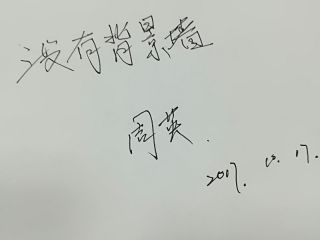 没有背景墙
周英.
2017. 10. 17.